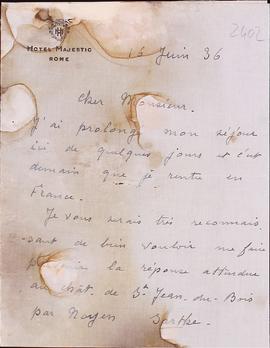 2402
HOTEL MAJESTIC
ROME
16 Juin 36
Cher Monsieur.
J'ai prolongé mon séjour
ici de quelques jours et c'est
demain que je rentre en
France.
Je vous serais très reconnais
sant de bien vouloir me faire
la réponse attendue
au chât. de St Jean-du-Bois
par Noyen Sarthe.